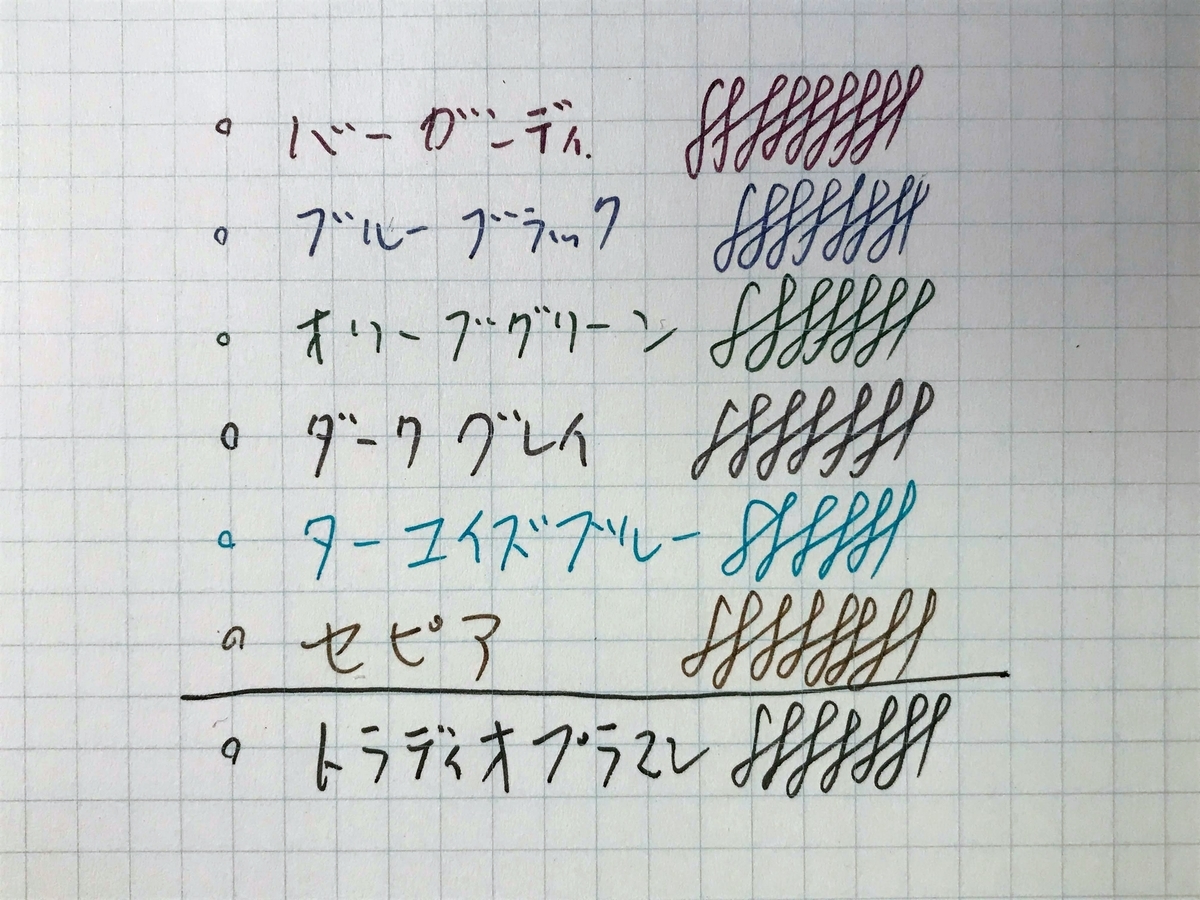 バーガンディ
ブルーブラック
オリーブグリーン
ダークグレイ
ターコイズブルー
セピア
トラディオプラマン